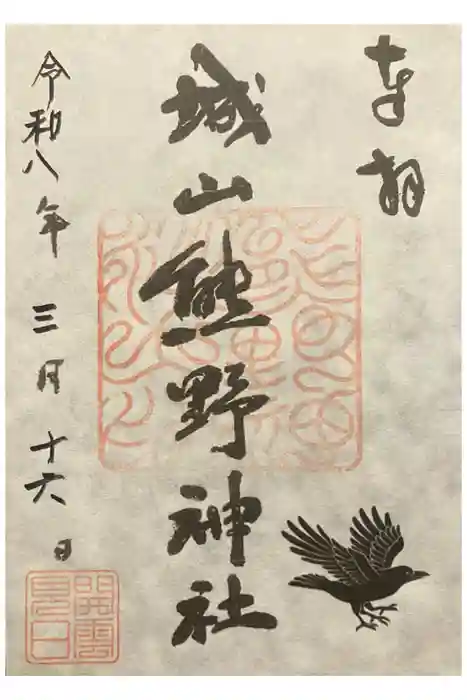 奉拝
城山熊野神社
令和八年三月十六日
開雲
見日